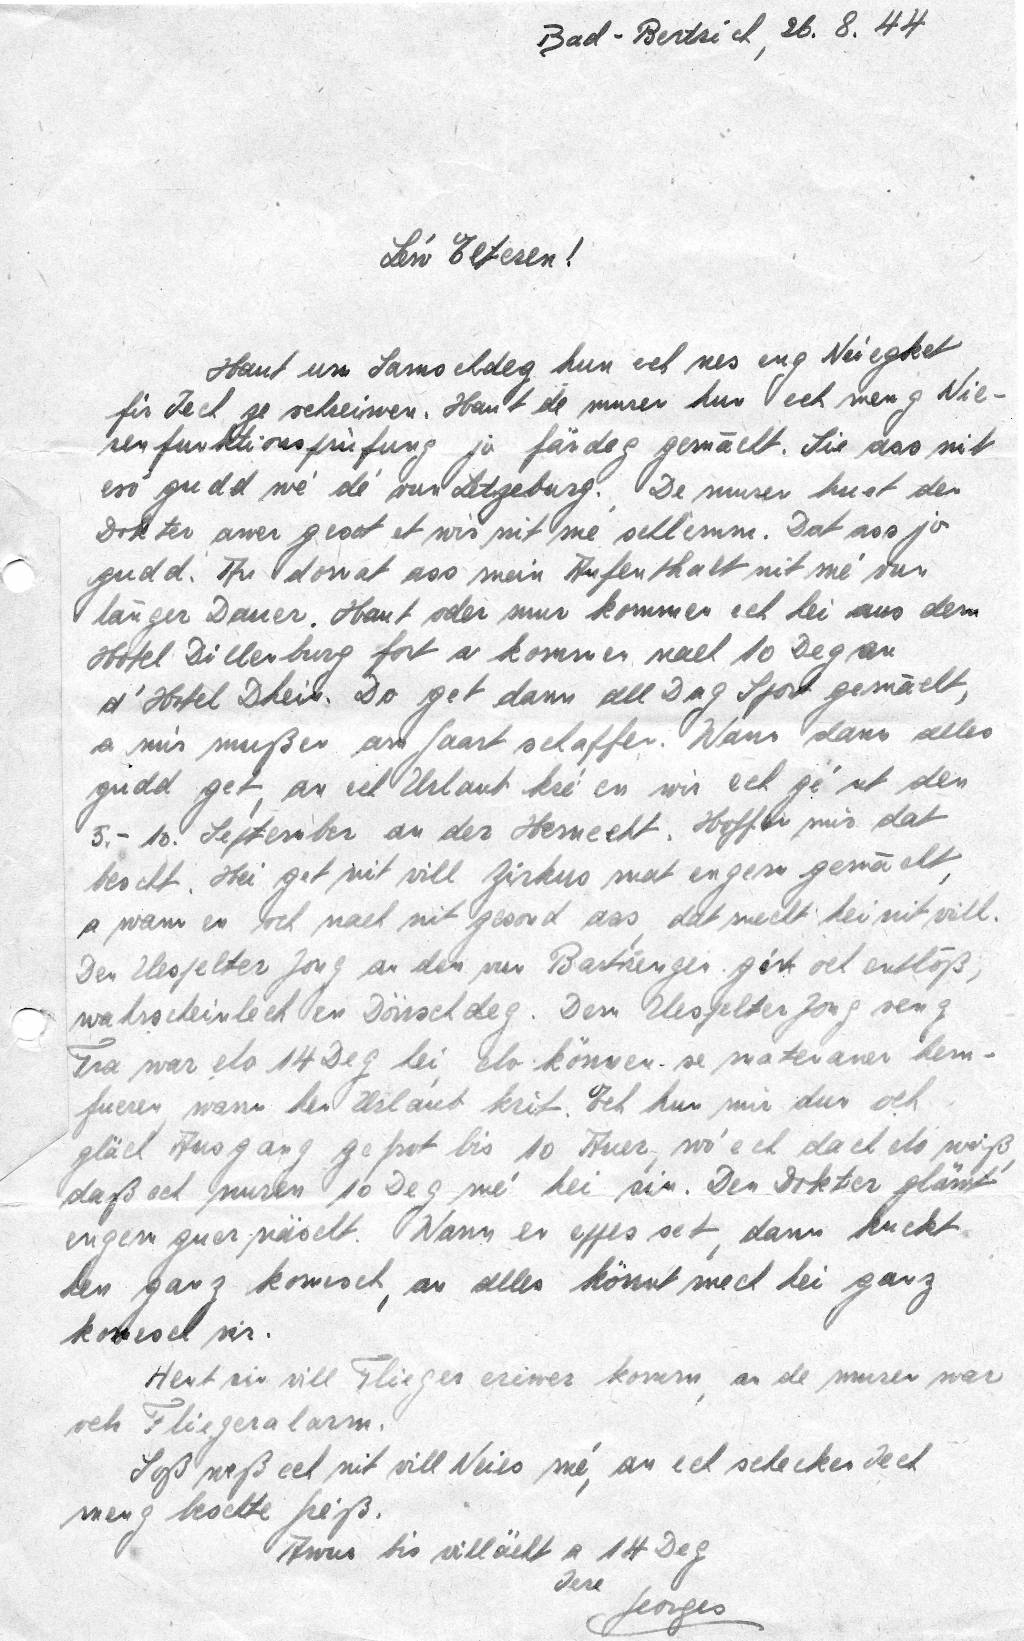 Bad-Bertrich, 26. 8. 44
Léw Elteren!
Haut um Samschdeg hun ech nes eng Neiegket
fir Iech ze schreiwen. Haut de muren hun ech meng Nie-
renfunktionsprüfung jo färdeg gemächt. Sie ass nit
esó gudd wé dé vun Letzeburg. De muren huet den
Dokter awer gesot et wir nit mé schlemm. Dat ass jo
gudd. An domat ass mein Aufenthalt nit mé vun
länger Dauer. Haut oder mur kommen ech hei aus dem
Hotel Dillenburg fort a kommen nach 10 Deg an
d'Hotel Dhein. Do get dann all Dag Sport gemächt,
a mir mußen am Gaart schaffen. Wann dann alles
gudd get, an ech Urlaub kré en wir ech gé nt den
5.- 10. September an der Hemecht. Hoffen mir dat
bescht. Hei get nit vill Zirkus mat engem gemächt,
a wann en och nach nit gesond ass, dat mecht hei nit vill.
Den Uespelter Jong an den vun Bartrengen gét och entlóß,
wahrscheinlech en Dönschdeg. Dem Uespelter Jong seng
Fra war elo 14 Deg hei, elo können se matenaner hem-
fueren, wann hen Urlaub krit. Ech hun mir dun och
gläch Ausgang gefrot bis 10 Auer, wó ech dach elo weiß,
daß ech nuren 10 Deg mé hei sin. Den Dokter gläwt
engem guer näischt. Wann en eppes set, dann kuckt
hen ganz komesch, an alles könnt mech hei ganz
komesch vir.
Hent sin vill Flieger eriwer komm, an de muren war
och Fliegeralarm.
Soß weß ech nit vill Neies mé, an ech schecken Iech
meng beschte Gréiß.
Awus bis villächt a 14 Deg
Iere
Georges